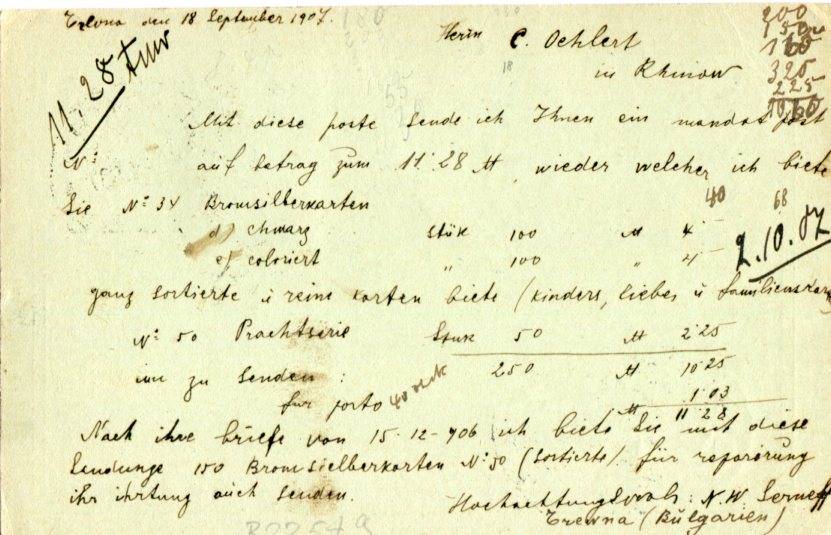 Trevna den 18 September 1907.
Herrn C. Oehlert
in Rhinow
200
150
325
225
11.28
Mit diese poste sende ich Ihnen ein mandat post
Nº auf betrag zum 11.28 M wieder welcher ich biete
Sie Nº 34 Bromsilberkarten
40 68
d) chwarz Stük 100 M 4 –
e) coloriert " 100 " 4 –
2.10.07
ganz sortierte u reine karten biete (kinders, liebes u familienskar
Nº 50 Prachtserie Stuk 50 M 2.25
mir zu senden: 250 M 10.25
fur porto 40 1.03
M 11.28
Nach ihre briefe von 15-12-906 ich biete Sie mit diese
Sendunge 150 Bromsielberkarten Nº 50 (sortierte) für reparirung
ihr ihrtung auch senden.
Hochachtungsvoll: N. W.
Trewna (Bulgarien)